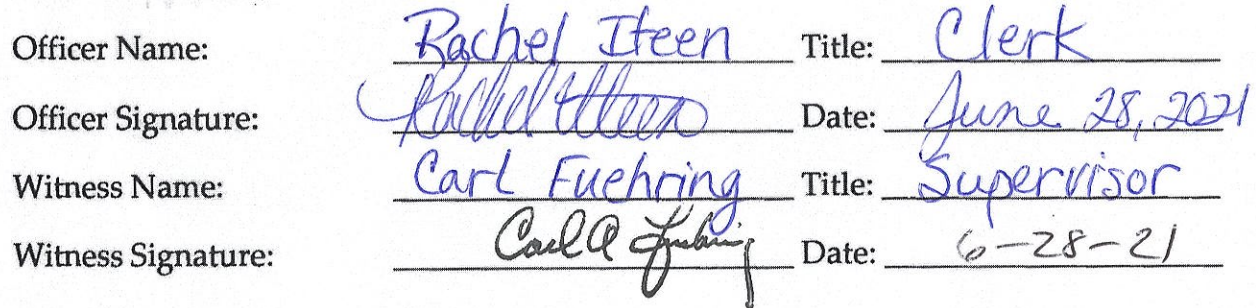 Officer Name: Rachel Iteen Title: Clerk
Officer Signature: Rachel Iteen Date: June 28, 2021
Witness Name: Carl Fuehring Title: Supervisor
Witness Signature: Carl A Fuehring Date: 6-28-21